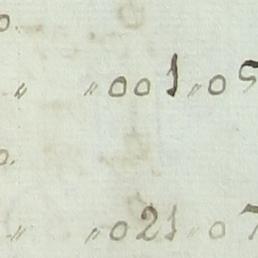 o.
〃 〃001〃05
o.
〃 〃021〃07